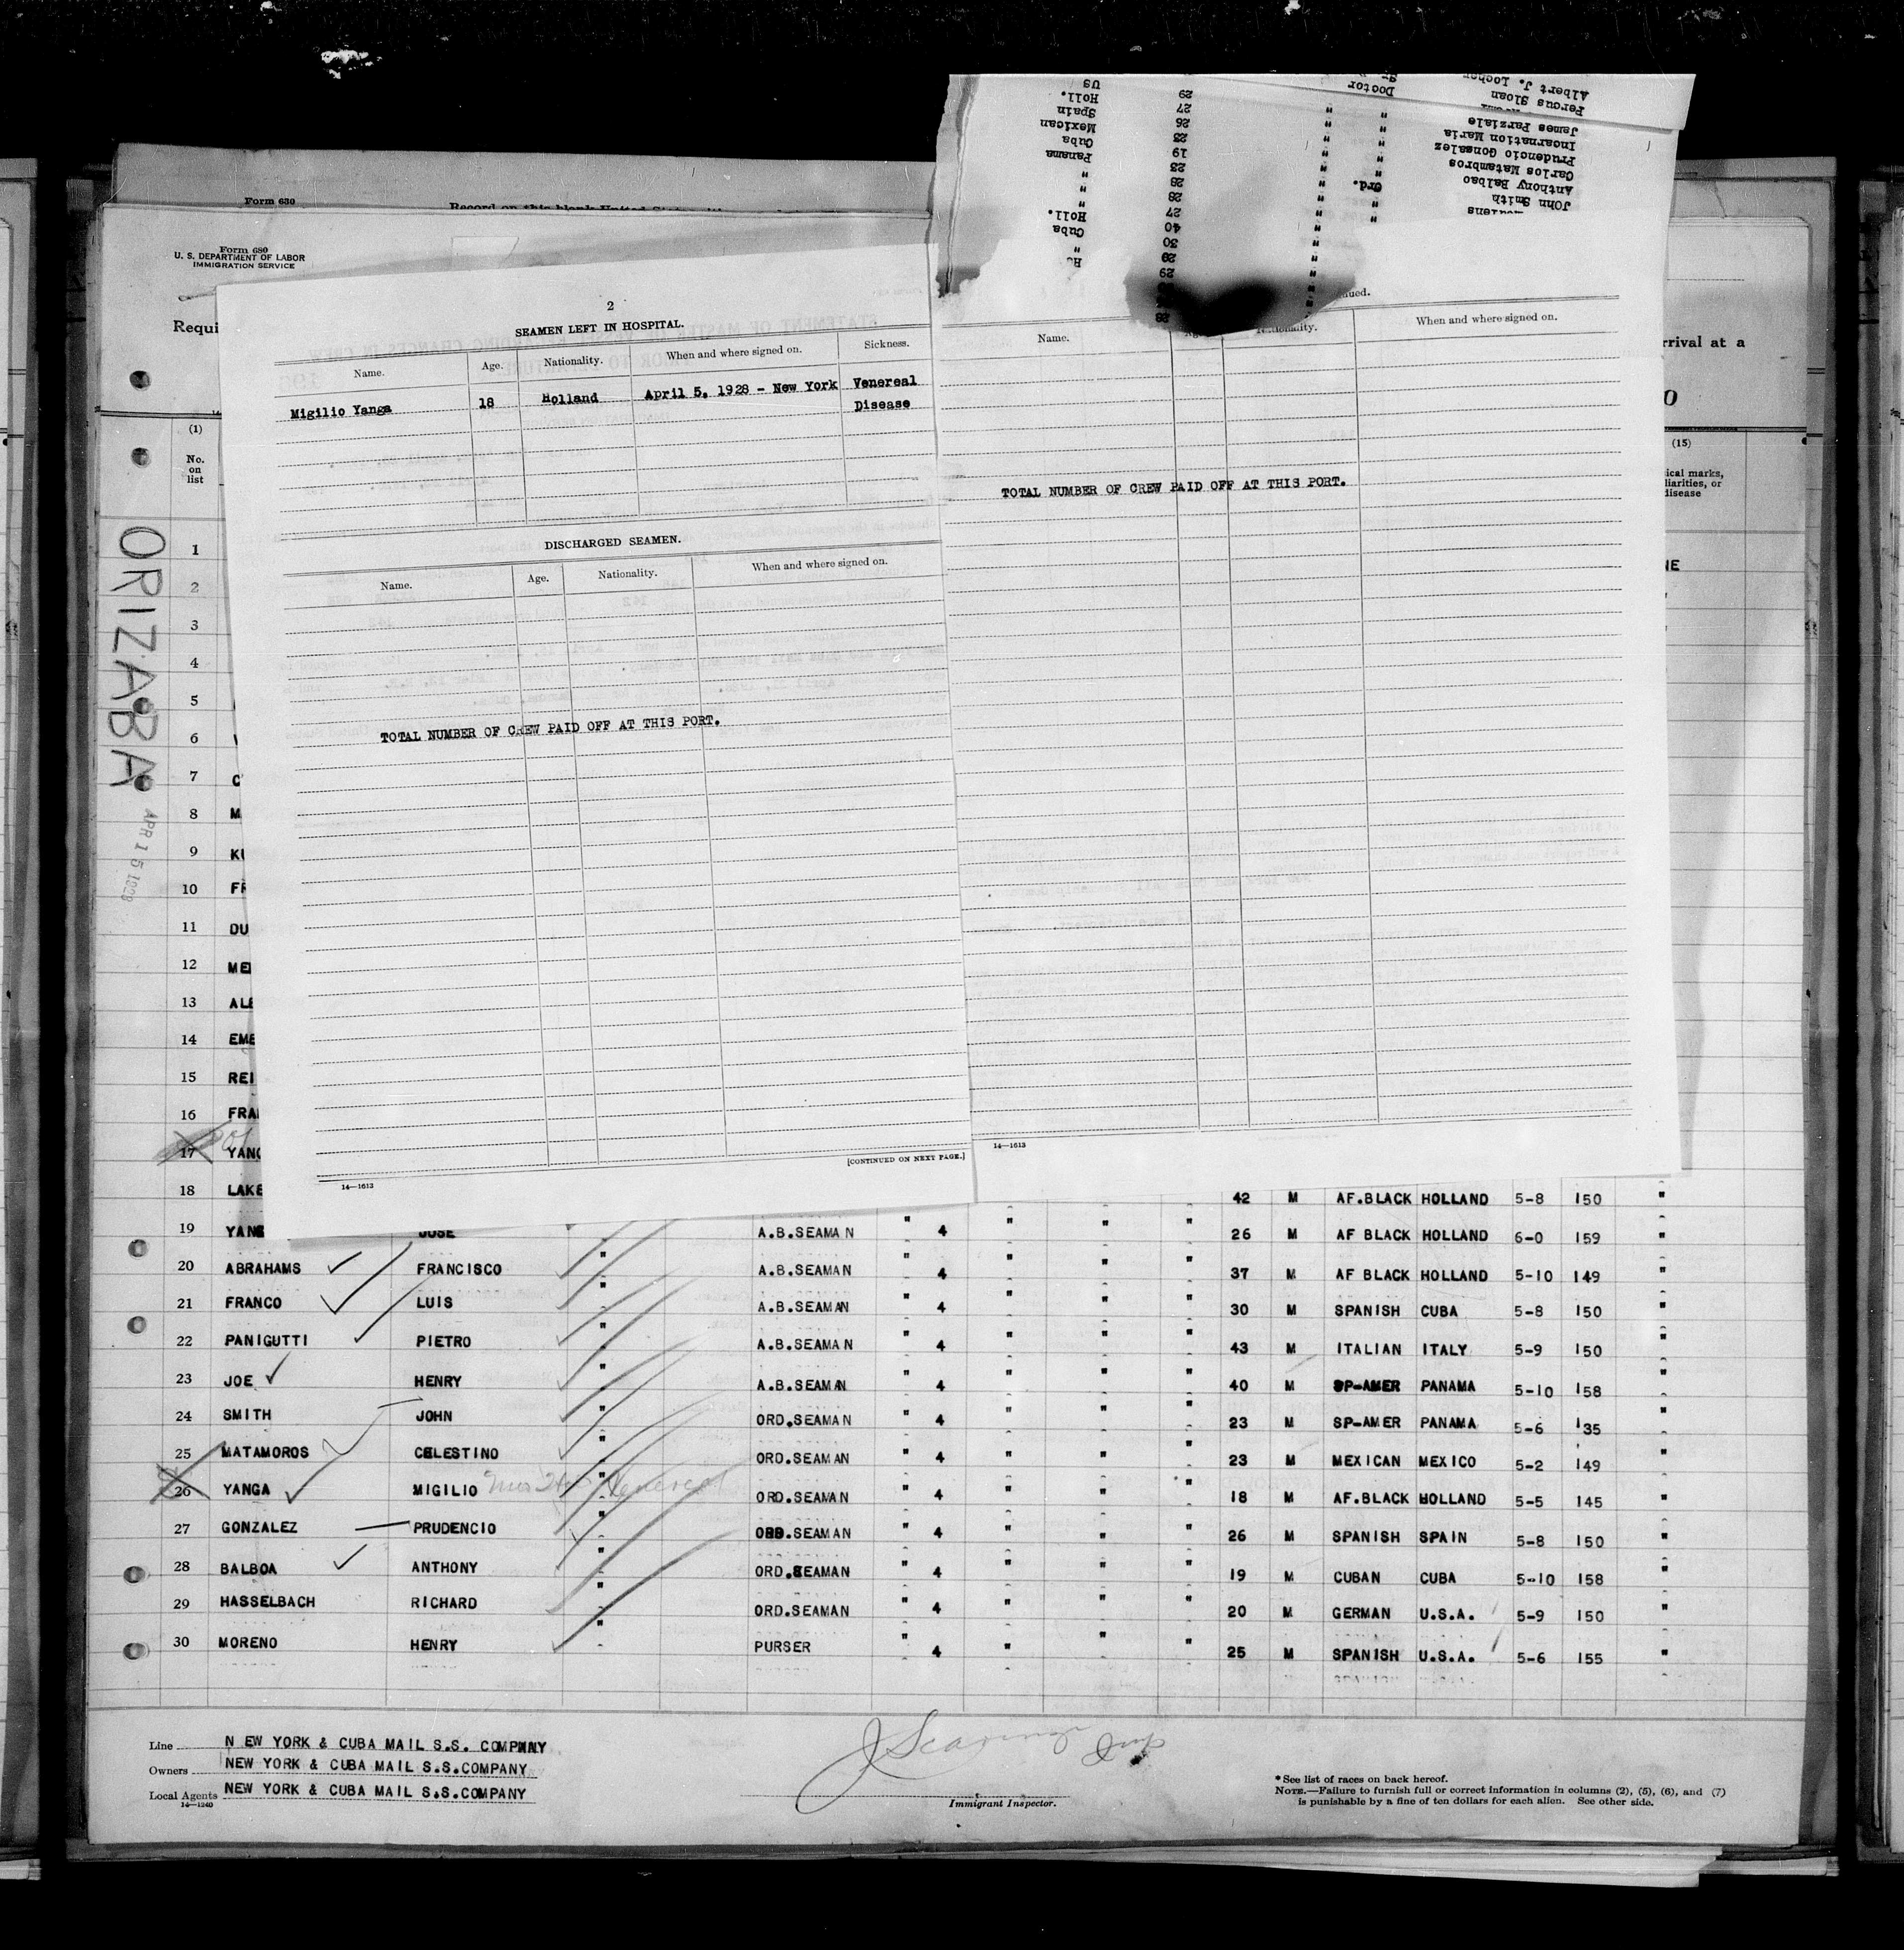 Form 630
Form 680
U. S. DEPARTMENT OF LABOR
IMMIGRATION SERVICE
Requi
rrival at a
(1)
No.
on
list
(15)
ical marks,
liarities, or
disease
NE
ORIZABA
APR 15 1928
US
Holl.
Spain
Mexican
Cuba
Panama
"
"
Holl.
Cuba
"
29
27
26
23
19
23
28
28
27
40
30
29
29
28
Doctor
Ord.
Albert J. Locher
Perous Sloan
James Parziale
Incarnation Maria
Prudencio Gonzalez
Carlos Matambros
Anthony Balbao
John Smith
2
SEAMEN LEFT IN HOSPITAL.
Name. Age. Nationality. When and where signed on. Sickness.
Migilio Yanga 18 Holland April 5, 1928 - New York Venereal
Disease
DISCHARGED SEAMEN.
Name. Age. Nationality. When and where signed on.
TOTAL NUMBER OF CREW PAID OFF AT THIS PORT.
[CONTINUED ON NEXT PAGE.]
14—1613
nued.
Name. Nationality. When and where signed on.
TOTAL NUMBER OF CREW PAID OFF AT THIS PORT.
14—1613
1
2
3
4
5
6
7
8 M
9 KU
10 FR
11 DU
12 ME
13 ALE
14 EME
15 REI
16 FRA
17 YANG
18 LAKE 42 M AF.BLACK HOLLAND 5-8 150 "
19 YANG JOSE A.B.SEAMAN " 4 " " " 26 M AF BLACK HOLLAND 6-0 159 "
20 ABRAHAMS FRANCISCO " A.B.SEAMAN " 4 " " " 37 M AF BLACK HOLLAND 5-10 149 "
21 FRANCO LUIS " A.B.SEAMAN " 4 " " " 30 M SPANISH CUBA 5-8 150 "
22 PANIGUTTI PIETRO " A.B.SEAMAN " 4 " " " 43 M ITALIAN ITALY 5-9 150 "
23 JOE HENRY " A.B.SEAMAN " 4 " " " 40 M SP-AMER PANAMA 5-10 158 "
24 SMITH JOHN " ORD.SEAMAN " 4 " " " 23 M SP-AMER PANAMA 5-6 135 "
25 MATAMOROS CELESTINO " ORD.SEAMAN " 4 " " " 23 M MEXICAN MEXICO 5-2 149 "
26 YANGA MIGILIO " ORD.SEAMAN " 4 " " " 18 M AF.BLACK HOLLAND 5-5 145 "
27 GONZALEZ PRUDENCIO " ORD.SEAMAN " 4 " " " 26 M SPANISH SPAIN 5-8 150 "
28 BALBOA ANTHONY " ORD.SEAMAN " 4 " " " 19 M CUBAN CUBA 5-10 158 "
29 HASSELBACH RICHARD " ORD.SEAMAN " 4 " " " 20 M GERMAN U.S.A. 5-9 150 "
30 MORENO HENRY " PURSER " 4 " " " 25 M SPANISH U.S.A. 5-6 155 "
Line N EW YORK & CUBA MAIL S.S. COMPANY
Owners NEW YORK & CUBA MAIL S.S.COMPANY
Local Agents NEW YORK & CUBA MAIL S.S.COMPANY
14—1240
Immigrant Inspector.
*See list of races on back hereof.
NOTE.—Failure to furnish full or correct information in columns (2), (5), (6), and (7)
is punishable by a fine of ten dollars for each alien. See other side.